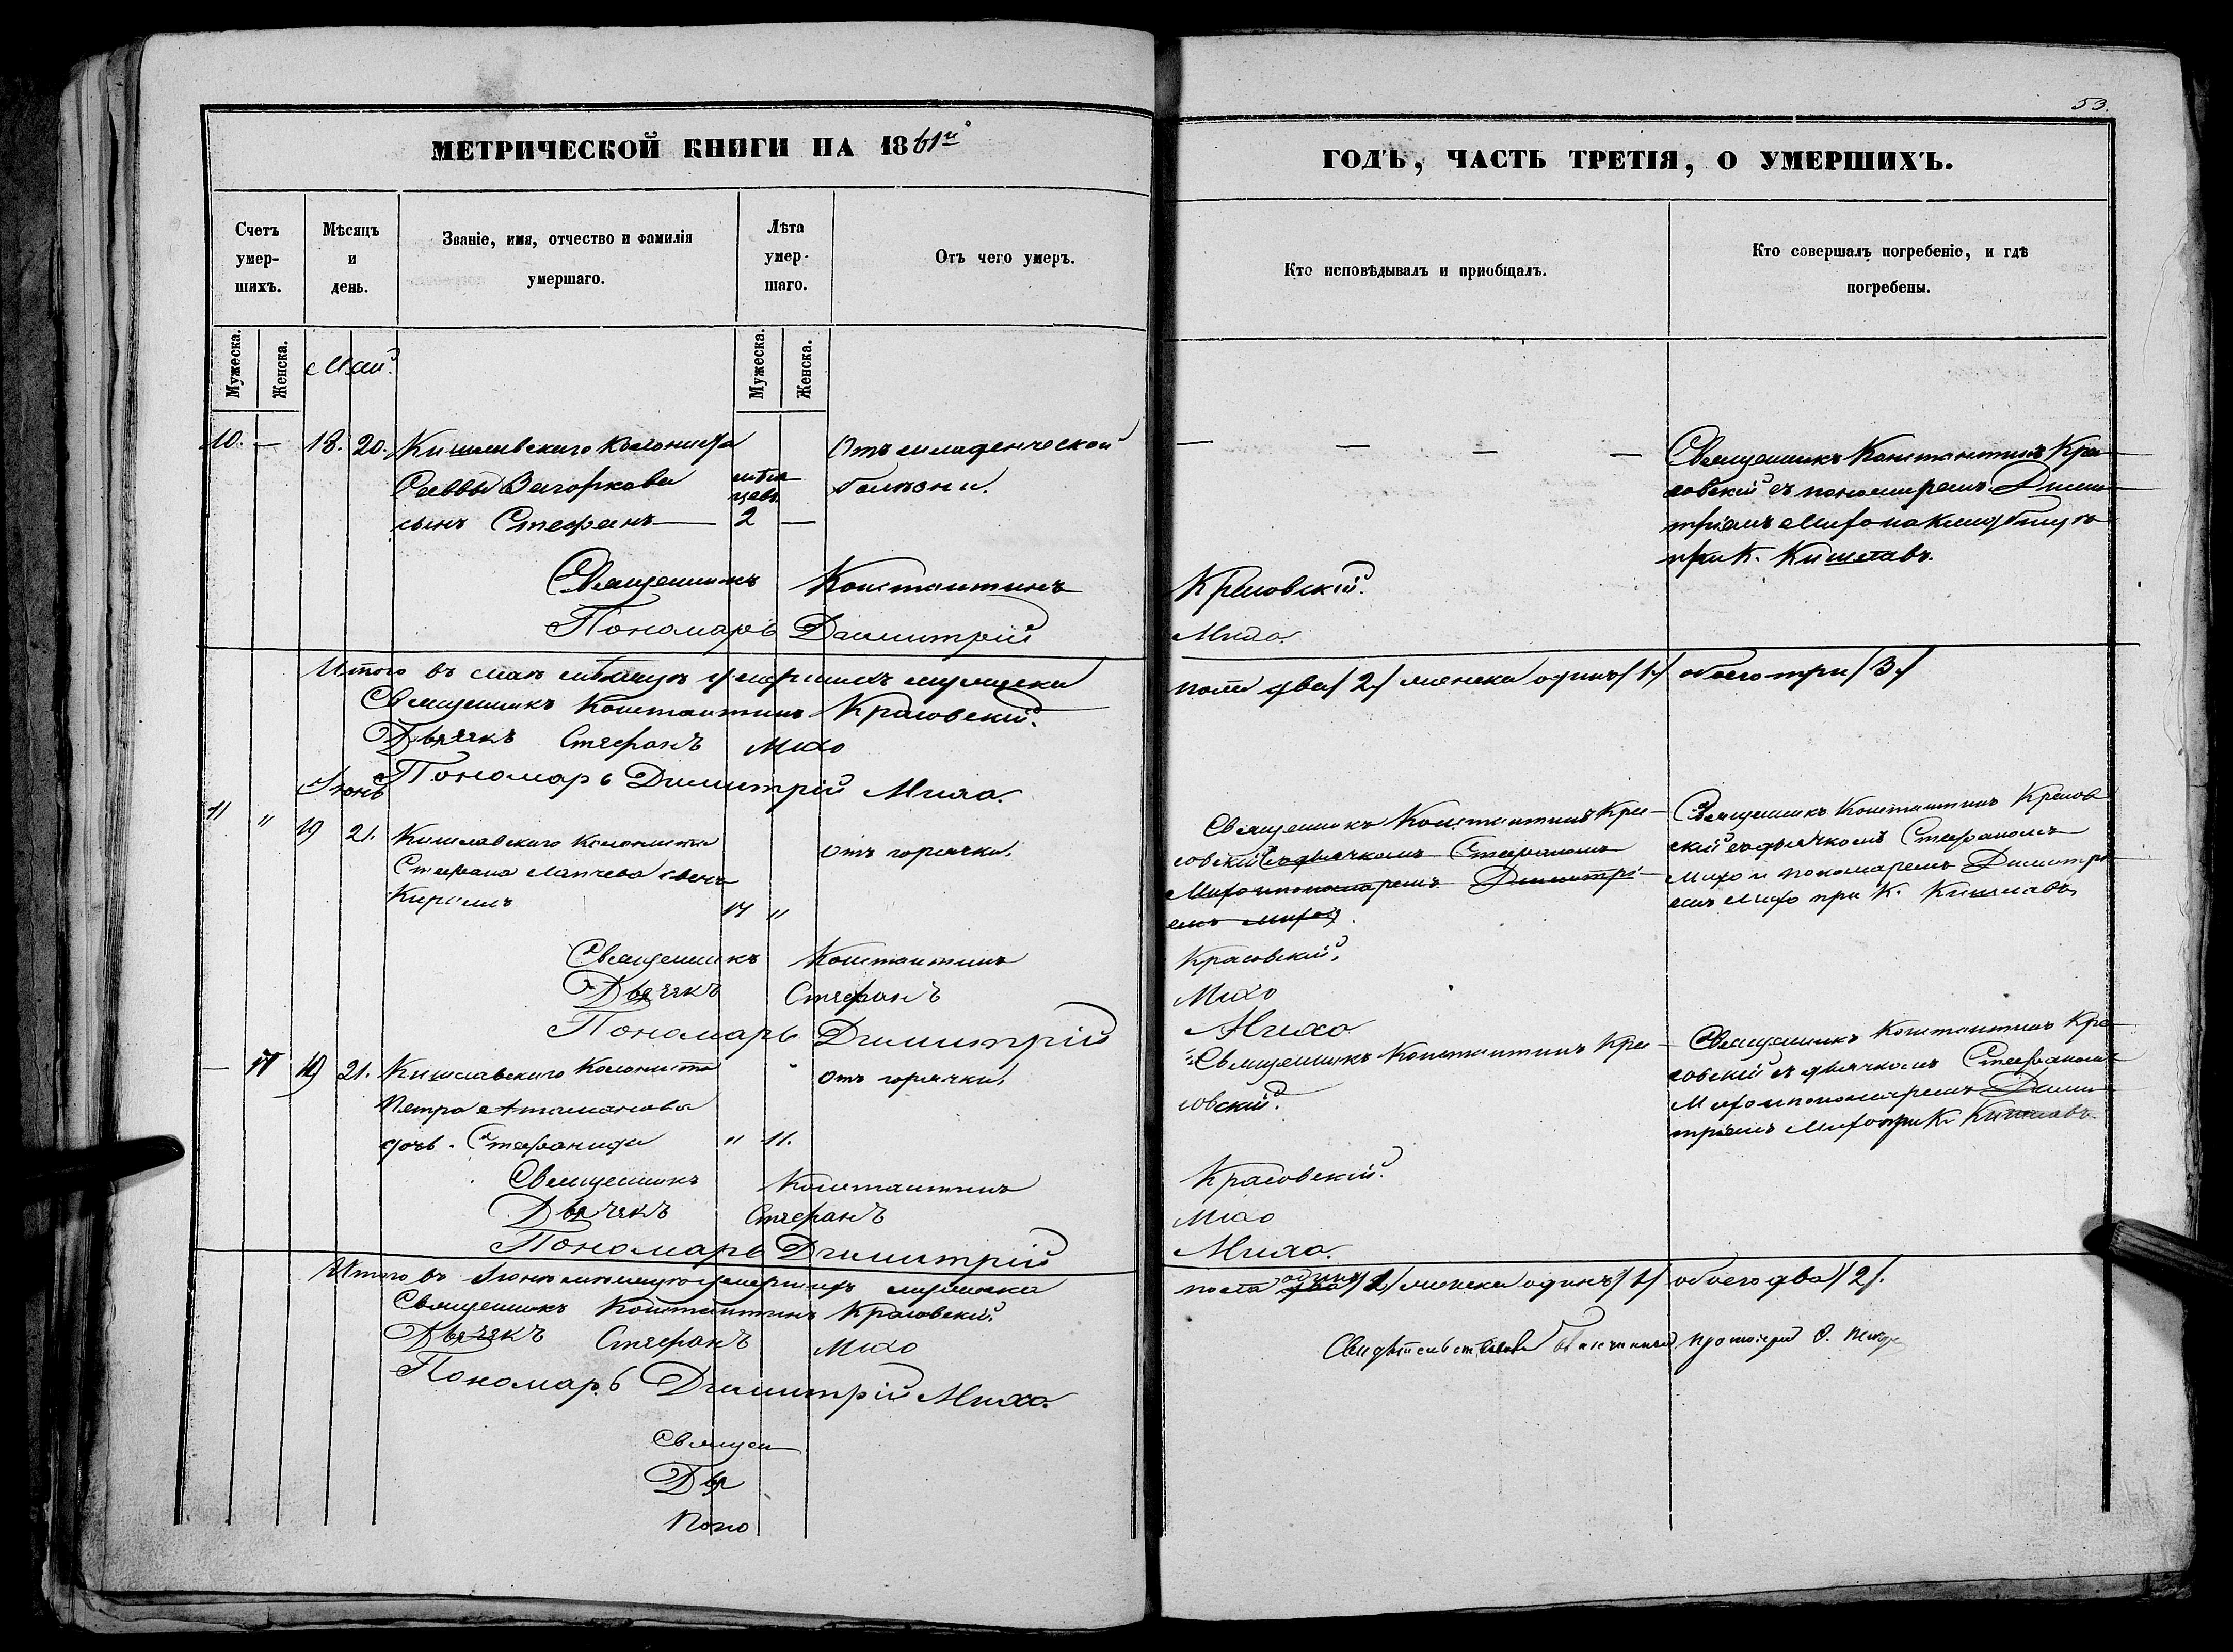 53.
МЕТРИЧЕСКОЙ КНИГИ НА 1861й
ГОДЪ, ЧАСТЬ ТРЕТІЯ, О УМЕРШИХЪ.
Счетъ умер-шихъ.
Мѣсяцъ и день.
Званіе, имя, отчество и фамилія умершаго.
Лѣта умер-шаго.
Отъ чего умеръ.
Кто исповѣдывалъ и пріобщалъ.
Кто совершалъ погребеніе, и гдѣ погребены.
Мужеска. Женска.
Май.
Мужеска. Женска.
10. — 18. 20. Кишлавскаго Колониста
Саввы Загоркова
сынъ Стефанъ — 2 —
мѣся
цевъ
Отъ младенческой
болѣзни.
— — — —
Священникъ Константинъ Кра
совскій съ пономаремъ Дими
тріемъ Михо на кладбищѣ
при К. Кишлавъ.
Священникъ Константинъ Красовскій.
Пономарь Димитрій Михо.
Итого въ маѣ мѣсяцѣ умершихъ мужеска пола два /2/ женска одинъ /1/ обоего три /3/
Священникъ Константинъ Красовскій.
Дьячекъ Стефанъ Михо
Пономарь Димитрій Михо.
Іюнь
11 " 19 21. Кишлавскаго Колониста
Стефана Лапчева сынъ
Кириллъ 14 "
Отъ горячки.
Священникъ Константинъ Кра-
совскій съ дьячкомъ Стефаномъ
Михо и пономаремъ Димитрі-
емъ Михо.
Священникъ Константинъ Красов
скій съ дьячкомъ Стефаномъ
Михо и пономаремъ Димитрі
емъ Михо при К. Кишлавъ
Священникъ Константинъ Красовскій.
Дьячекъ Стефанъ Михо
Пономарь Димитрій Михо
— 11 19 21. Кишлавскаго Колониста
Петра Атаманова
дочь Стефанида " 11.
Отъ горячки.
Священникъ Константинъ Кра-
совскій.
Священникъ Константинъ Кра
совскій съ дьячкомъ Стефаномъ
Михо и пономаремъ Дими
тріемъ Михо при К. Кишлавъ
Священникъ Константинъ Красовскій.
Дьячекъ Стефанъ Михо
Пономарь Димитрій Михо.
Итого въ Іюнѣ мѣсяцѣ умершихъ мужеска пола два одинъ /1/ женска одинъ /1/ обоего два /2/.
Священникъ Константинъ Красовскій.
Дьячекъ Стефанъ Михо
Пономарь Димитрій Михо.
Свидѣтельствовалъ Благочинный протоіерей
Священ
Дья
Поно